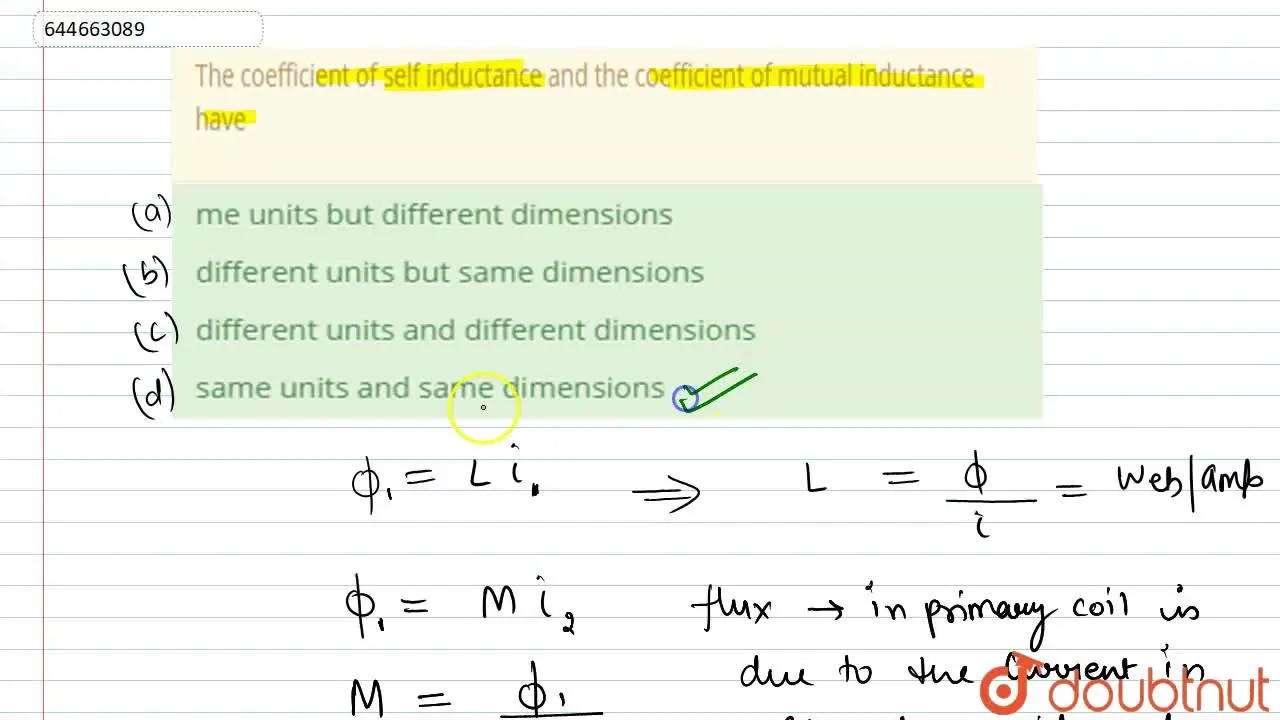 644663089
The coefficient of self inductance and the coefficient of mutual inductance
have
(a) me units but different dimensions
(b) different units but same dimensions
(c) different units and different dimensions
(d) same units and same dimensions
ϕ₁ = L i₁ ⇒ L = ϕ/i = Web/amp
ϕ₁ = M i₂ flux → in primary coil is
due to the current in
M = ϕ₁
doubtnut